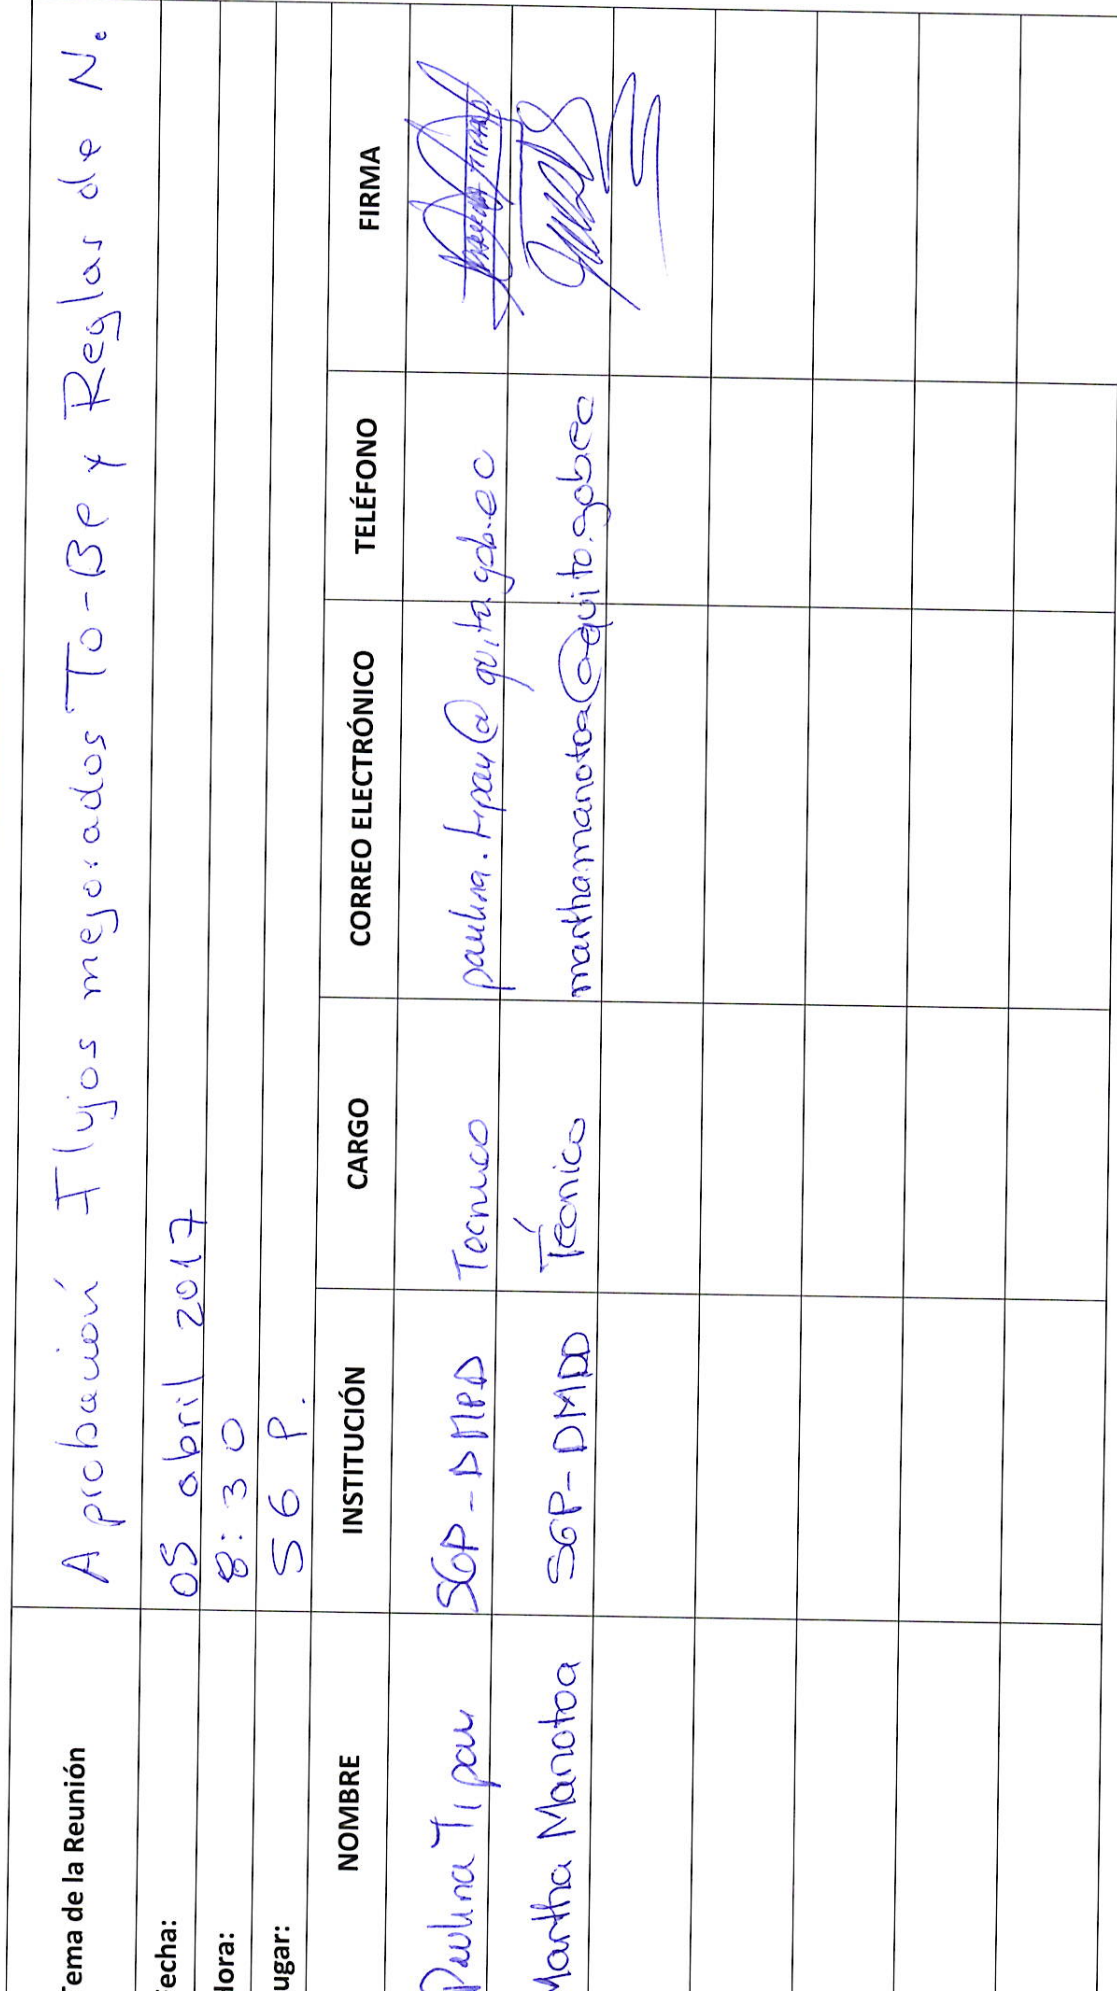 Tema de la Reunión Aprobación Flujos mejorados To-Be y Reglas de N.
echa: 05 abril 2017
Hora: 8:30
ugar: SGP.
NOMBRE INSTITUCIÓN CARGO CORREO ELECTRÓNICO TELÉFONO FIRMA
Paulina Tipan SGP-DMPD Tecnico paulina.tipan@quito.gob.ec
Martha Manotoa SGP-DMDD Técnico marthamanotoa@quito.gob.ec